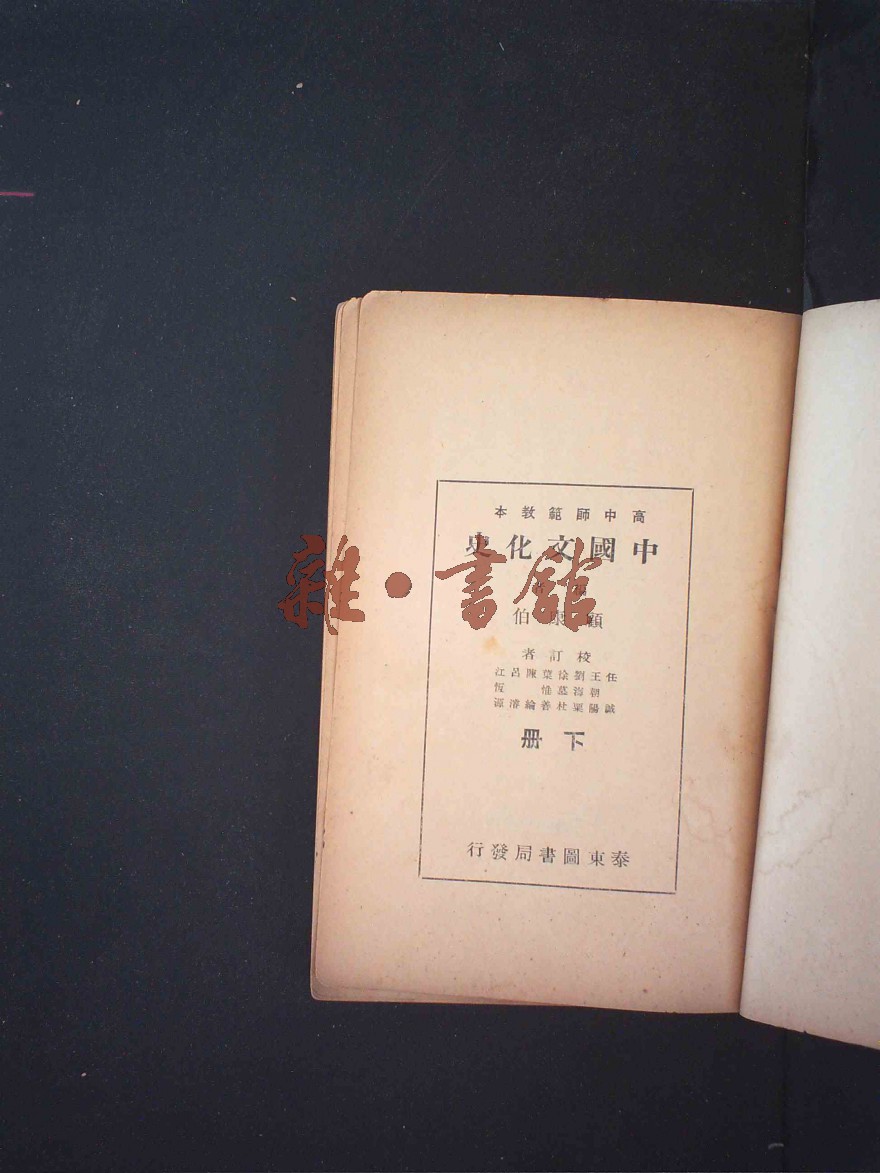 高中師範教本
中國文化史
者
顧康伯
校訂者
任王劉徐葉陳呂江
朝海慕惟恆
誠陽粟杜善綸濬源
下册
泰東圖書局發行
雜·書館